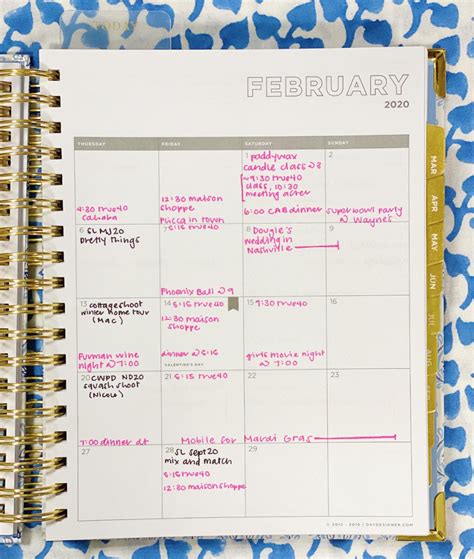 FEBRUARY
2020
THURSDAY FRIDAY SATURDAY SUNDAY
1 paddywax
candle class @ 3
~9:30 true40
class, 10:30
meeting after
6:00 CAB dinner
2
super bowl party
@ Wayne's
4:30 true40
cahaba
12:30 maison
shoppe
pizza in town
6 SL MJ20
pretty things
7 5:15 true40
Phoenix Ball @ 9
8 Dougie's
wedding in
Nashville
9
13 cottage shoot
winter home tour
(Mac)
Furman wine
night @ 7:00
14 5:15 true40
12:30 maison
shoppe
dinner @ 8:15
VALENTINE'S DAY
15 9:30 true40
girls movie night
@ 7:00
16
20 CWPD ND20
squash shoot
(Nicole)
7:00 dinner at
21 5:15 true40
Mobile for Mardi Gras
22
23
27
28 SL sept20
mix and match
5:15 true40
12:30 maison shoppe
29
© 2012 - 2019 | DAYDESIGNER.COM
MAR
APR
MAY
JUN
JUL
AUG